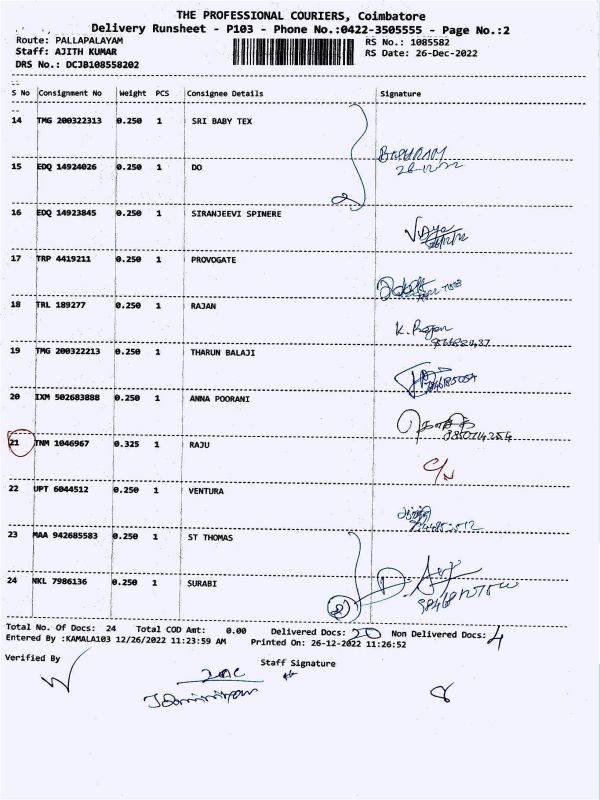 THE PROFESSIONAL COURIERS, Coimbatore
Delivery Runsheet - P103 - Phone No.:0422-3505555 - Page No.:2
Route: PALLAPALAYAM RS No.: 1085582
Staff: AJITH KUMAR RS Date: 26-Dec-2022
DRS No.: DCJB108558202
S No Consignment No Weight PCS Consignee Details Signature
14 TMG 200322313 0.250 1 SRI BABY TEX
15 EDQ 14924026 0.250 1 DO
26-12/22
16 EDQ 14923845 0.250 1 SIRANJEEVI SPINERE
17 TRP 4419211 0.250 1 PROVOGATE
18 TRL 189277 0.250 1 RAJAN
K. Rajan
19 TMG 200322213 0.250 1 THARUN BALAJI
20 IXM 502683888 0.250 1 ANNA POORANI
21 TNM 1046967 0.325 1 RAJU
C/N
22 UPT 6044512 0.250 1 VENTURA
23 MAA 942685583 0.250 1 ST THOMAS
24 NKL 7986136 0.250 1 SURABI
2
Total No. Of Docs: 24 Total COD Amt: 0.00 Delivered Docs: 20 Non Delivered Docs: 4
Entered By :KAMALA103 12/26/2022 11:23:59 AM Printed On: 26-12-2022 11:26:52
Verified By Staff Signature